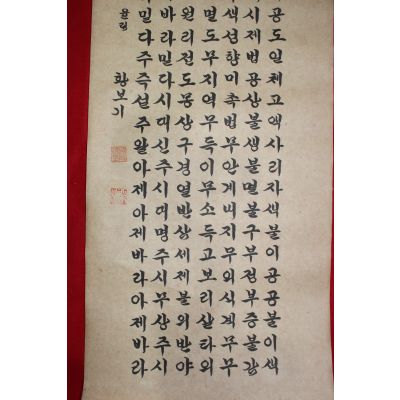 공도일체고액사리자색불이공공불이색
시제법공상불생불멸불구부정부증불감
색성향미촉법무안계내지무의식계무무
멸도무지역무득이무소득고보리살타의
원리전도몽상구경열반삼세제불의반야
바라밀다시대신주시대명주시무상주시
밀다주즉설주왈아제아제바라아제바라
황보기